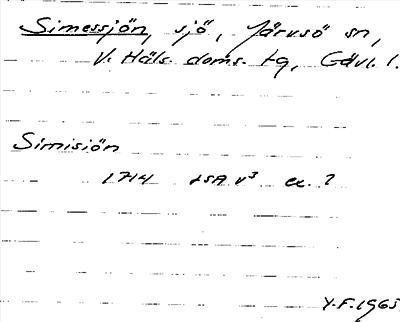 Simessjön, sjö, Järvsö sn,
V. Häls. doms. tg, Gävl. l.
Simisiön
1714 LSA v³ a. ?
Y.F. 1965